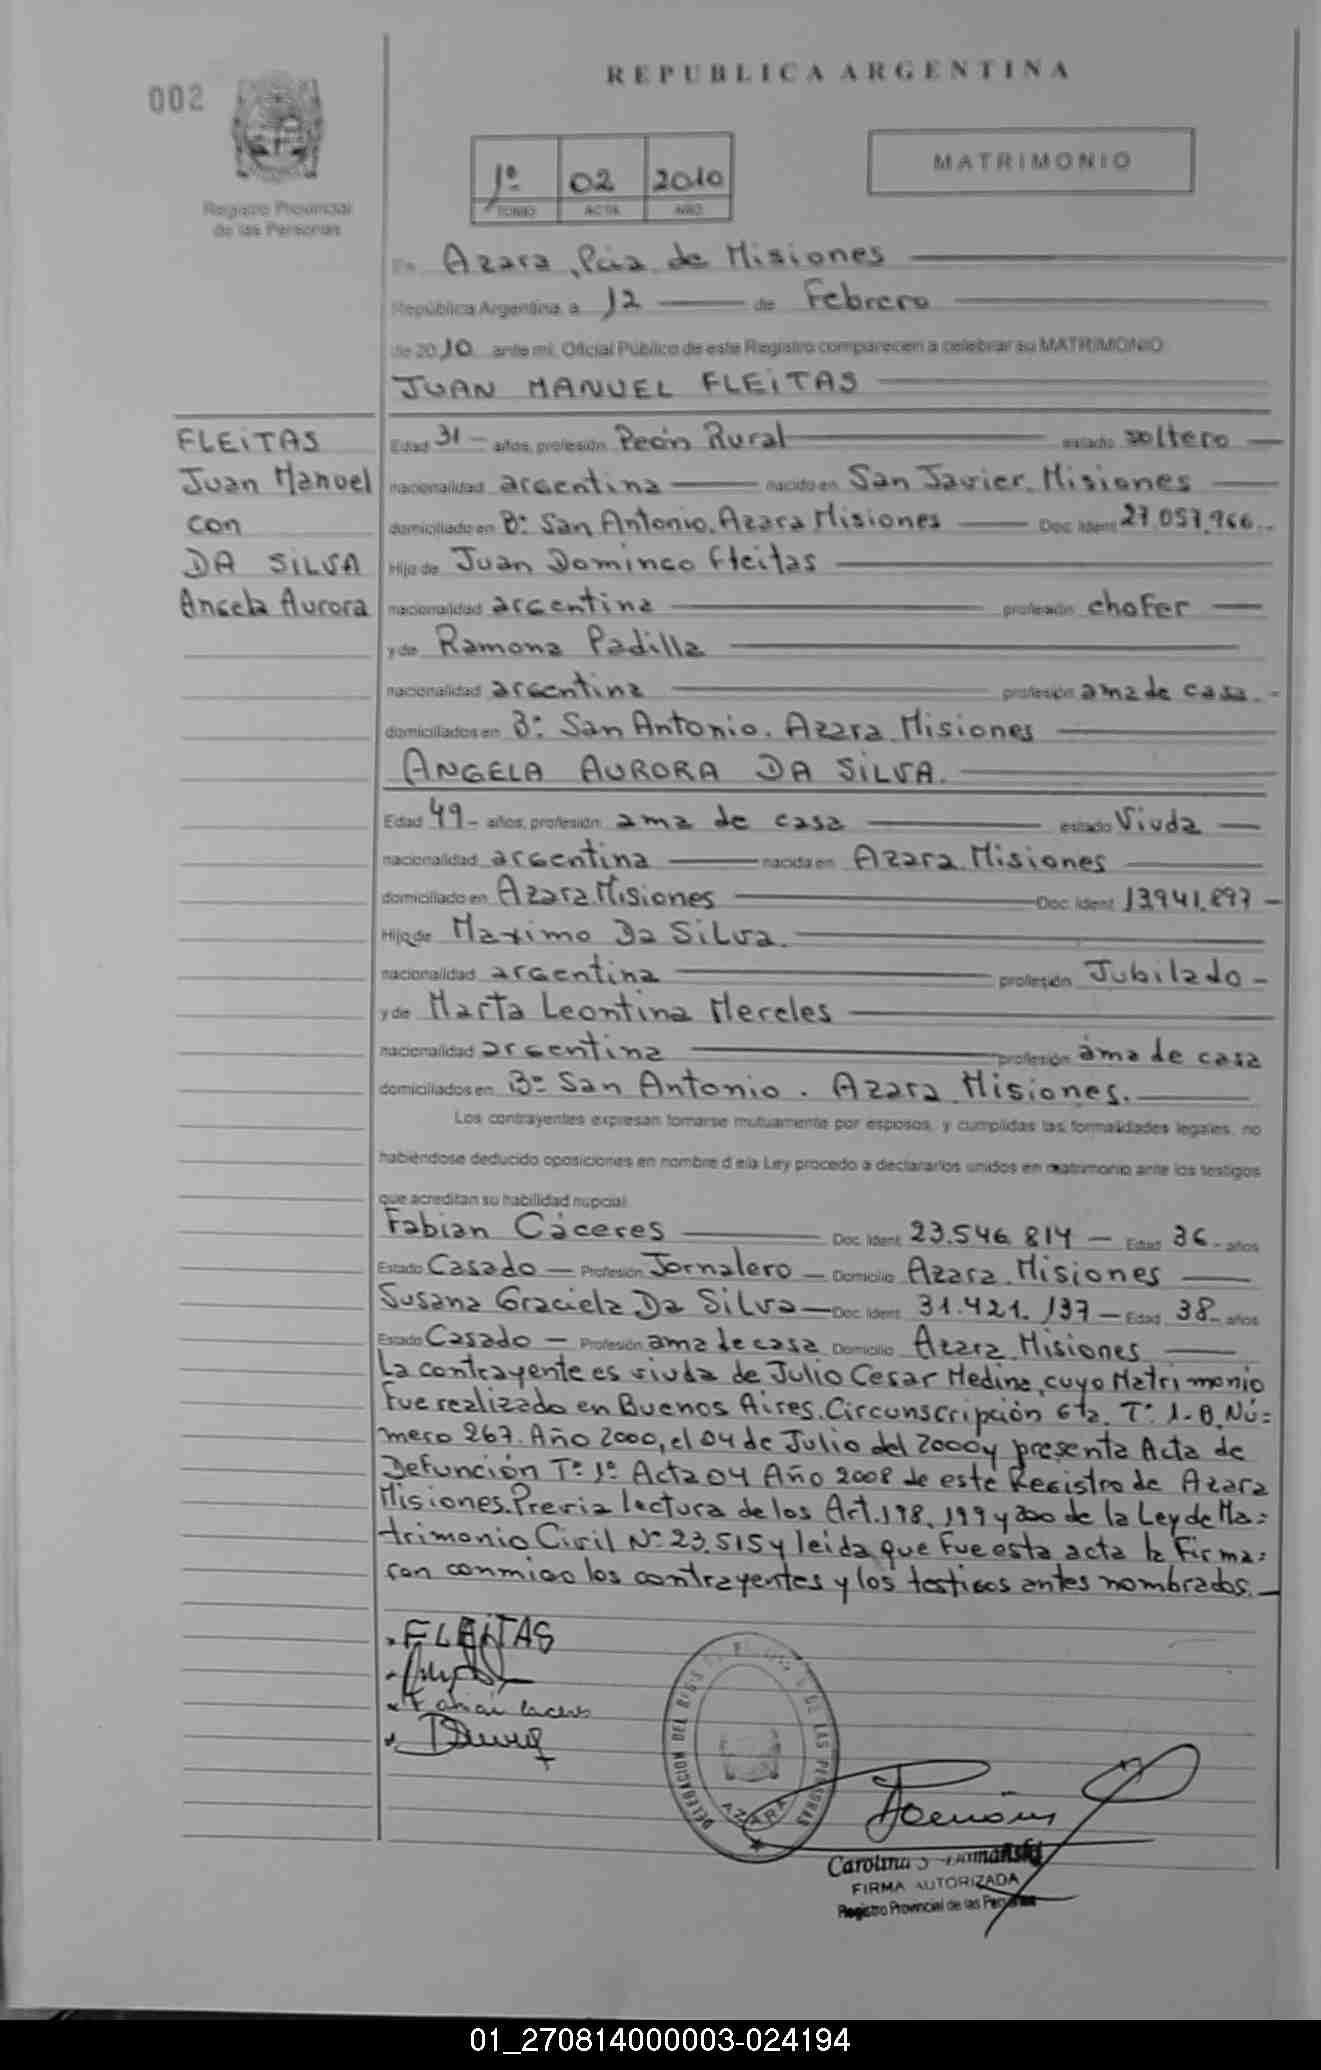 REPUBLICA ARGENTINA
002
MATRIMONIO
1º 02 2010
TOMO ACTA AÑO
Registro Provincial
de las Personas
En Azara, Pcia de Misiones
República Argentina, a 12 de Febrero
de 2010 ante mi, Oficial Público de este Registro comparecen a celebrar su MATRIMONIO
JUAN MANUEL FLEiTAS
FLEiTAS
Juan Manuel
con
DA SILVA
Angela Aurora
Edad 31 - años, profesión Peón Rural estado soltero
nacionalidad argentina nacido en San Javier. Misiones
domiciliado en Bº San Antonio. Azara Misiones Doc. Ident 27.057.966.-
Hijo de Juan Domingo Fleitas
nacionalidad argentina profesión chofer
y de Ramona Padilla
nacionalidad argentina profesión ama de casa.-
domiciliados en Bº San Antonio. Azara Misiones
ANGELA AURORA DA SiLVA.
Edad 49 - años, profesión ama de casa estado Viuda
nacionalidad argentina nacida en Azara Misiones
domiciliado en Azara Misiones Doc. Ident 13.941.897 -
Hija de Maximo Da Silva.
nacionalidad argentina profesión Jubilado -
y de Marta Leontina Mereles
nacionalidad argentina profesión ama de casa
domiciliados en Bº San Antonio. Azara Misiones.
Los contrayentes expresan tomarse mutuamente por esposos, y cumplidas las formalidades legales, no
habiéndose deducido oposiciones en nombre d ela Ley procedo a declararlos unidos en matrimonio ante los testigos
que acreditan su habilidad nupcial
Fabian Cáceres Doc. Ident 23.546.814 - Edad 36 - años
Estado Casado - Profesión Jornalero - Domicilio Azara. Misiones
Susana Graciela Da Silva - Doc. Ident 31.421.137 - Edad 38 - años
Estado Casado - Profesión ama de casa Domicilio Azara. Misiones
La contrayente es viuda de Julio Cesar Medina, cuyo Matrimonio
Fue realizado en Buenos Aires. Circunscripción 6ta. Tº 1-B. Nú=
mero 267. Año 2000, el 04 de Julio del 2000 y presenta Acta de
Defunción Tº 1º Acta 04 Año 2008 de este Registro de Azara
Misiones. Previa lectura de los Art. 198, 199 y 200 de la Ley de Ma=
trimonio Civil Nº 23.515 y leida que fue esta acta la Firma=
ron conmigo los contrayentes y los testigos antes nombrados.
FLEiTAS
Fabian Caceres
DELEGACION DEL REGISTRO DE LAS PERSONAS
AZARA
Carolina S. Domański
FIRMA AUTORIZADA
Registro Provincial de las Personas
01_270814000003-024194